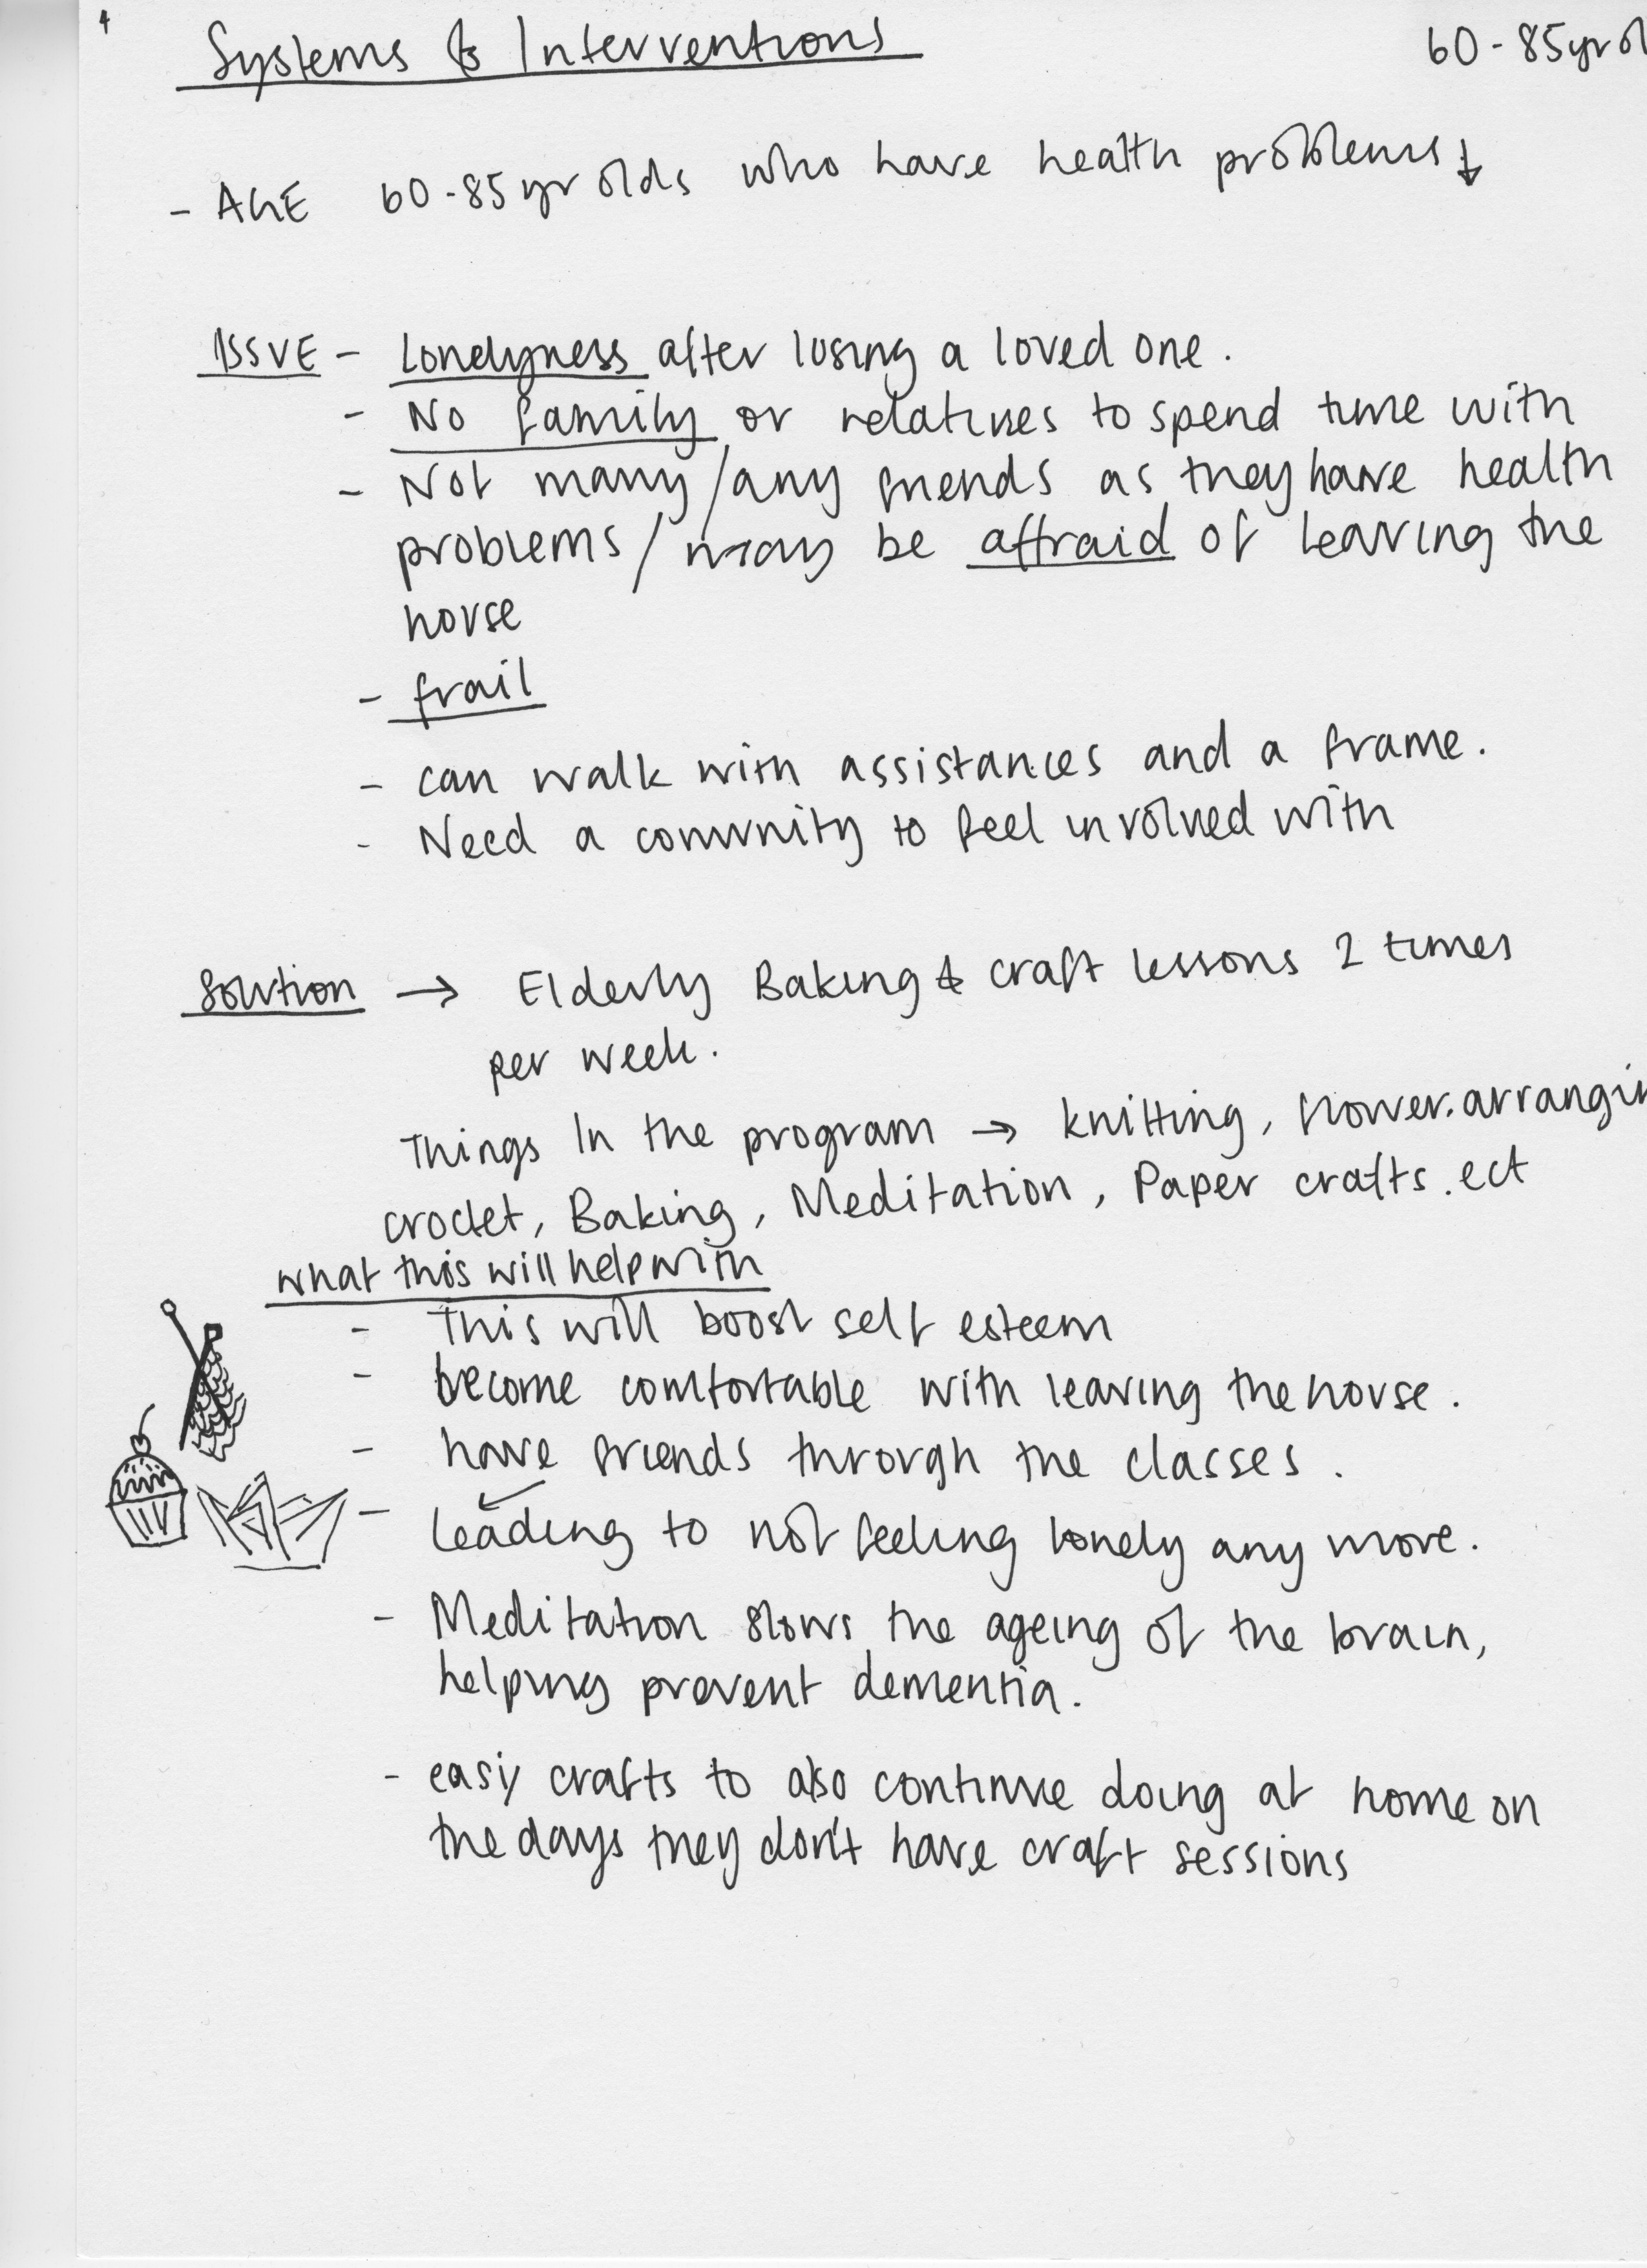 Systems & Interventions
60-85yr ol
- AGE 60-85yr olds who have health problems ↓
ISSUE - Lonelyness after losing a loved one.
- No family or relatives to spend time with
- Not many/any friends as they have health
problems/may be affraid of leaving the
house
- frail
- can walk with assistances and a frame.
- Need a comunity to feel involved with
Solution → Elderly Baking & craft lessons 2 times
per week.
Things In the program → knitting, flower.arrangin
croctet, Baking, Meditation, Paper crafts.ect
what this will help with
- This will boost self esteem
- become comfortable with leaving the house.
- have friends through the classes.
- leading to not feeling lonely any more.
- Meditation slows the ageing of the brain,
helping prevent dementia.
- easy crafts to also continue doing at home on
the days they don't have craft sessions